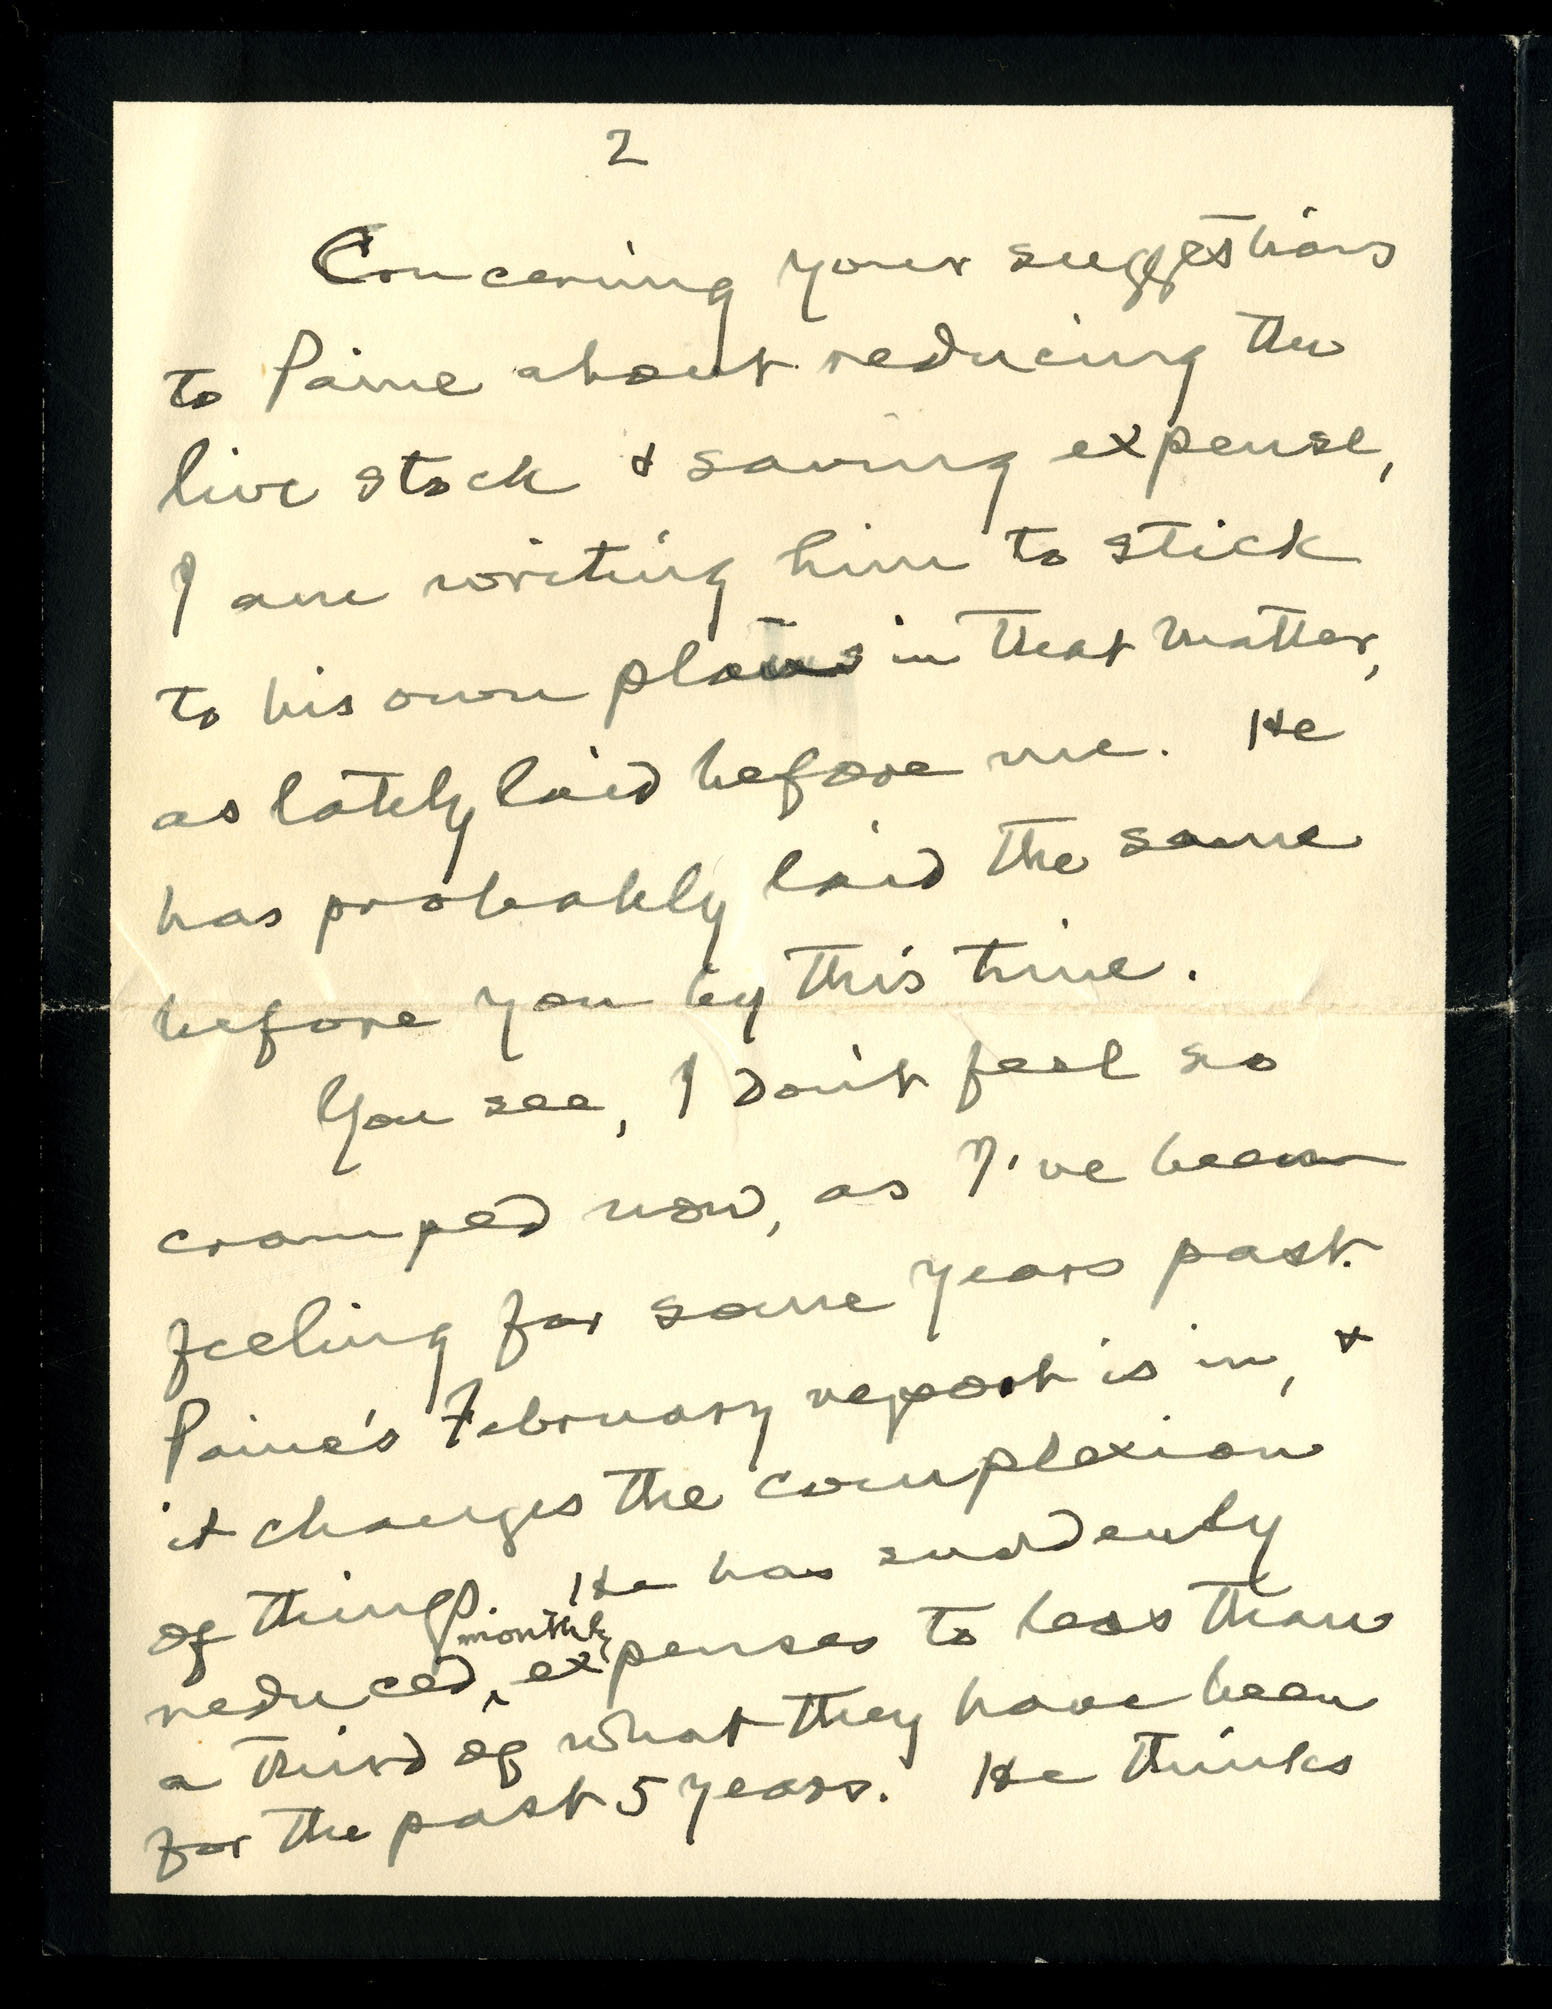 2
Concerning your suggestions
to Paine about reducing the
live stock & saving expense,
I am writing him to stick
to his own plans in that matter,
as lately laid before me. He
has probably laid the same
before you by this time.
You see, I don't feel so
cramped now, as I've been
feeling for some years past.
Paine's February report is in, &
it changes the complexion
of things. He has suddenly
monthly
reduced ‸ expenses to less than
a third of what they have been
for the past 5 years. He thinks